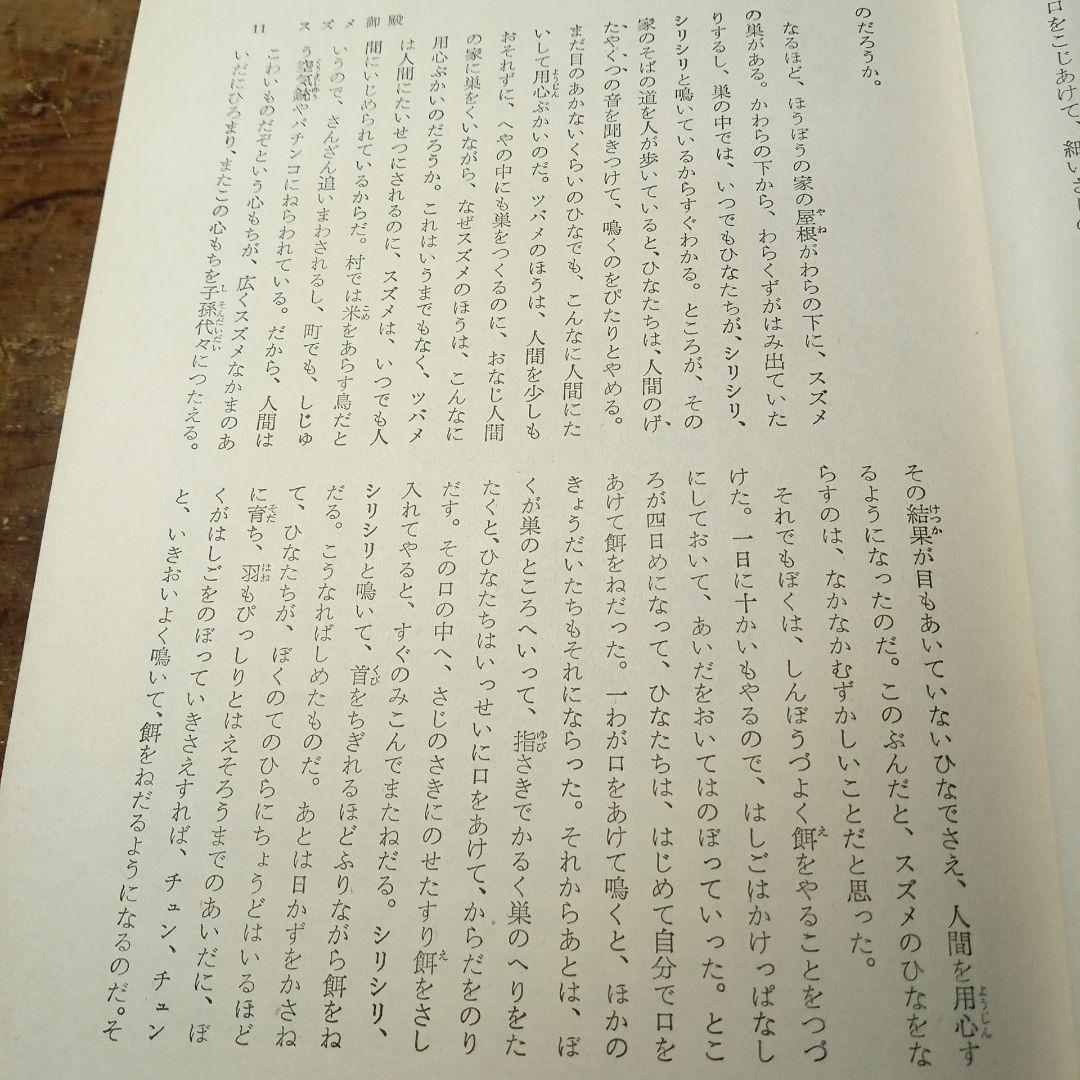 口をこじあけて、細い
のだろうか。
なるほど、ほうぼうの家の屋根がわらの下に、スズメ
の巣がある。かわらの下から、わらくずがはみ出ていた
りするし、巣の中では、いつでもひなたちが、シリシリ、
シリシリと鳴いているからすぐわかる。ところが、その
家のそばの道を人が歩いていると、ひなたちは、人間のげ
たやくつの音を聞きつけて、鳴くのをぴたりとやめる。
まだ目のあかないくらいのひなでも、こんなに人間にた
いして用心ぶかいのだ。ツバメのほうは、人間を少しも
おそれずに、へやの中にも巣をつくるのに、おなじ人間
の家に巣をくいながら、なぜスズメのほうは、こんなに
用心ぶかいのだろうか。これはいうまでもなく、ツバメ
は人間にたいせつにされるのに、スズメは、いつでも人
間にいじめられているからだ。村では米をあらす鳥だと
いうので、さんざん追いまわされるし、町でも、しじゅ
う空気銃やパチンコにねらわれている。だから、人間は
こわいものだぞという心もちが、広くスズメなかまのあ
いだにひろまり、またこの心もちを子孫代々につたえる。
その結果が目もあいていないひなでさえ、人間を用心す
るようになったのだ。このぶんだと、スズメのひなをな
らすのは、なかなかむずかしいことだと思った。
それでもぼくは、しんぼうづよく餌をやることをつづ
けた。一日に十かいもやるので、はしごはかけっぱなし
にしておいて、あいだをおいてはのぼっていった。とこ
ろが四日めになって、ひなたちは、はじめて自分で口を
あけて餌をねだった。一わが口をあけて鳴くと、ほかの
きょうだいたちもそれにならった。それからあとは、ぼ
くが巣のところへいって、指さきでかるく巣のへりをた
たくと、ひなたちはいっせいに口をあけて、からだをのり
だす。その口の中へ、さじのさきにのせたすり餌をさし
入れてやると、すぐのみこんでまたねだる。シリシリ、
シリシリと鳴いて、首をちぎれるほどふりながら餌をね
だる。こうなればしめたものだ。あとは日かずをかさね
て、ひなたちが、ぼくのてのひらにちょうどはいるほど
に育ち、羽もぴっしりとはえそろうまでのあいだに、ぼ
くがはしごをのぼっていきさえすれば、チュン、チュン
と、いきおいよく鳴いて、餌をねだるようになるのだ。そ
11 スズメ御殿